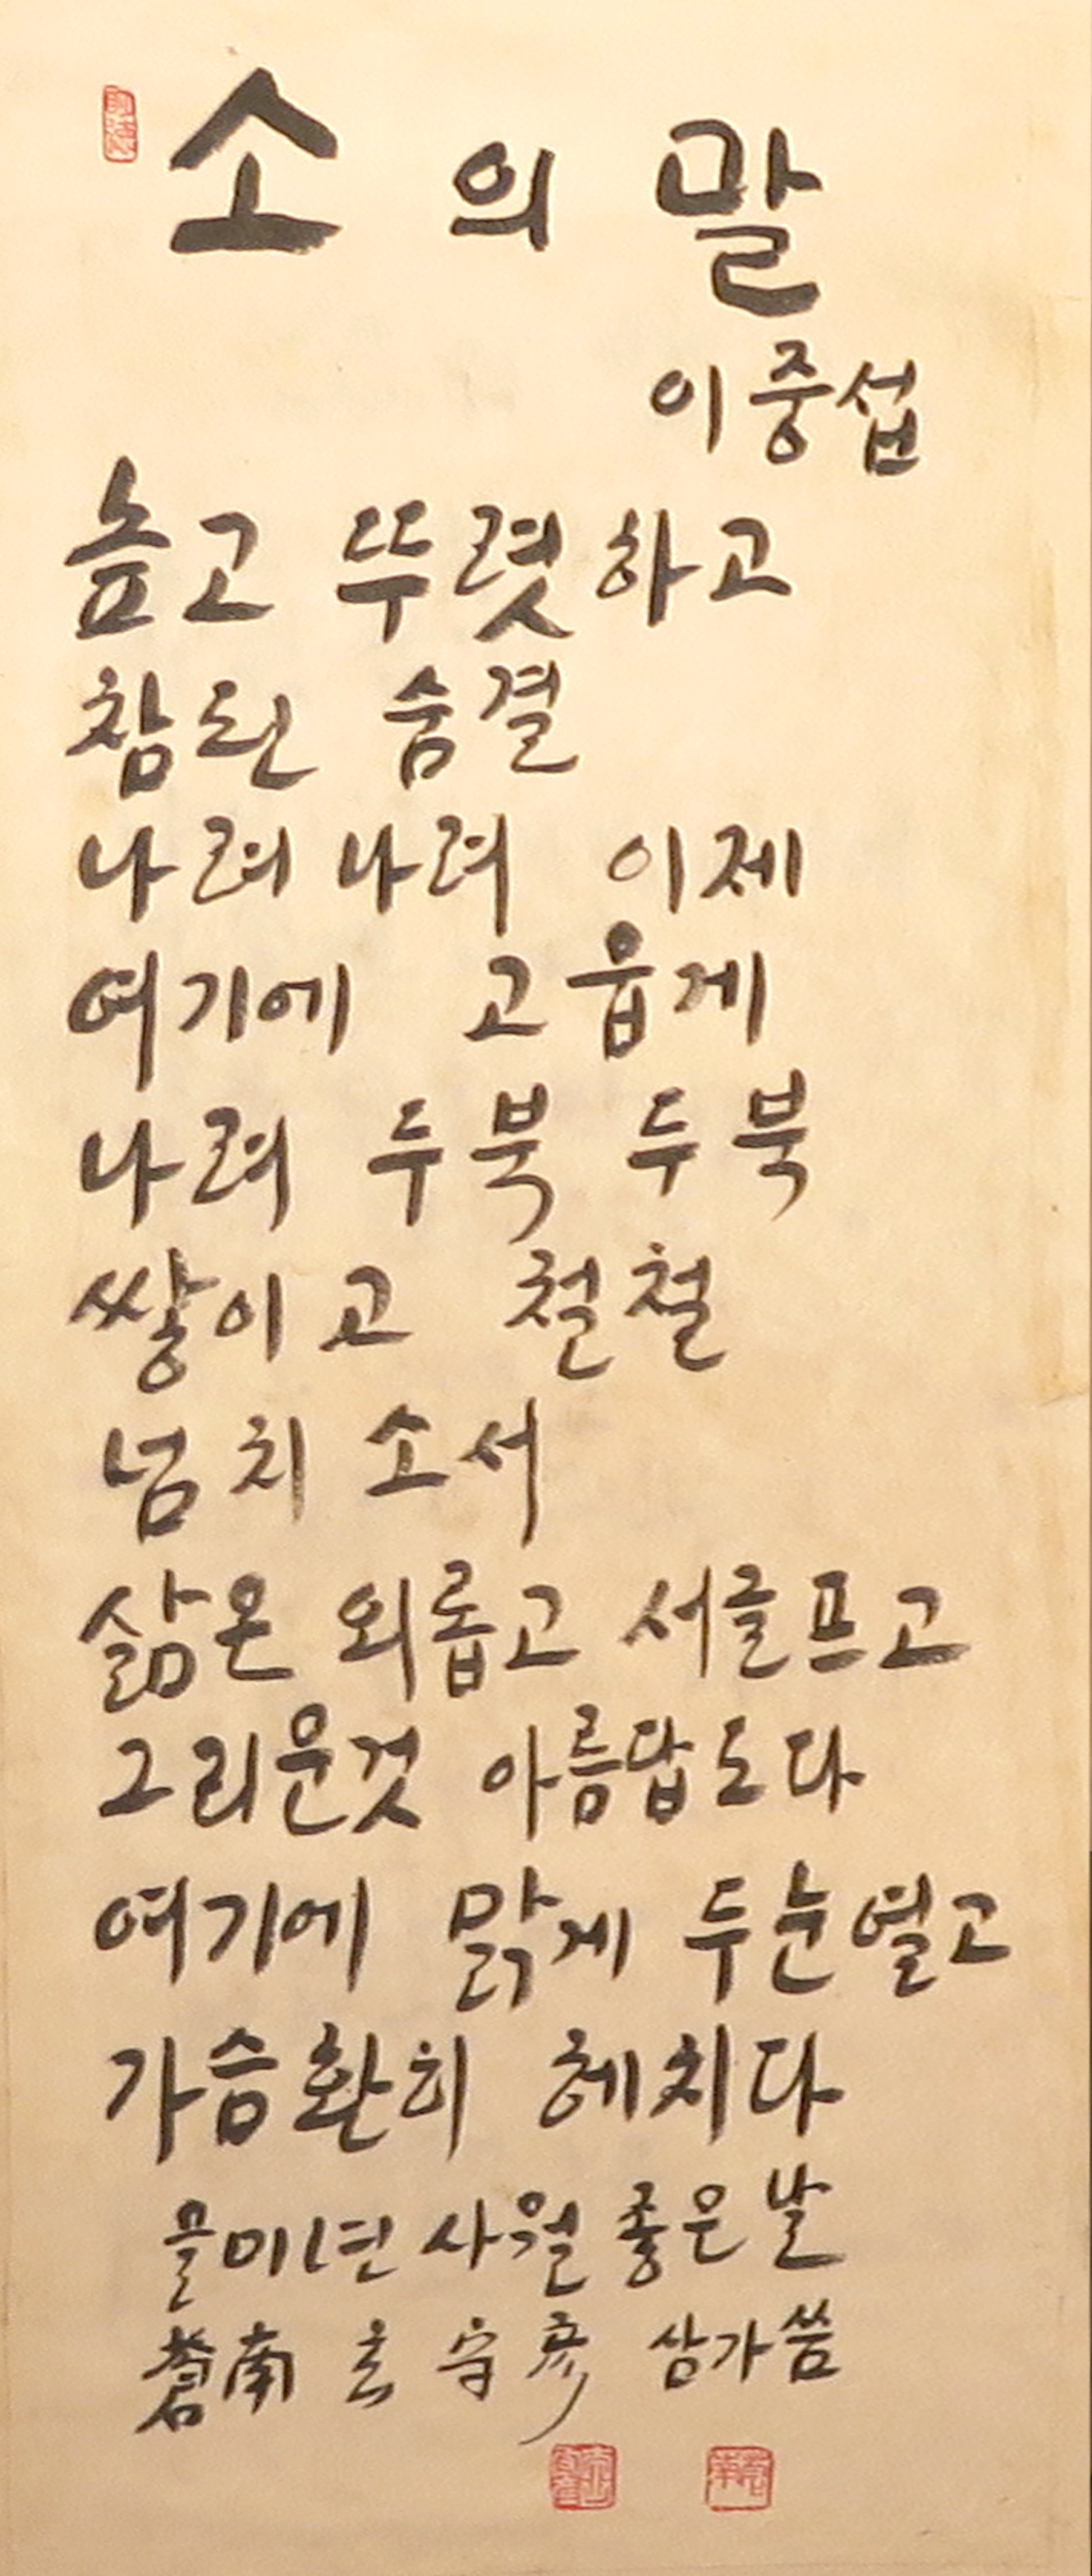 소의 말
이중섭
높고 뚜렷하고
참된 숨결
나려 나려 이제
여기에 고웁게
나려 두북 두북
쌓이고 철철
넘치소서
삶은 외롭고 서글프고
그리운것 아름답도다
여기에 맑게 두눈열고
가슴환히 헤치다
을미년 사월 좋은날
蒼南 玄守彦 삼가씀